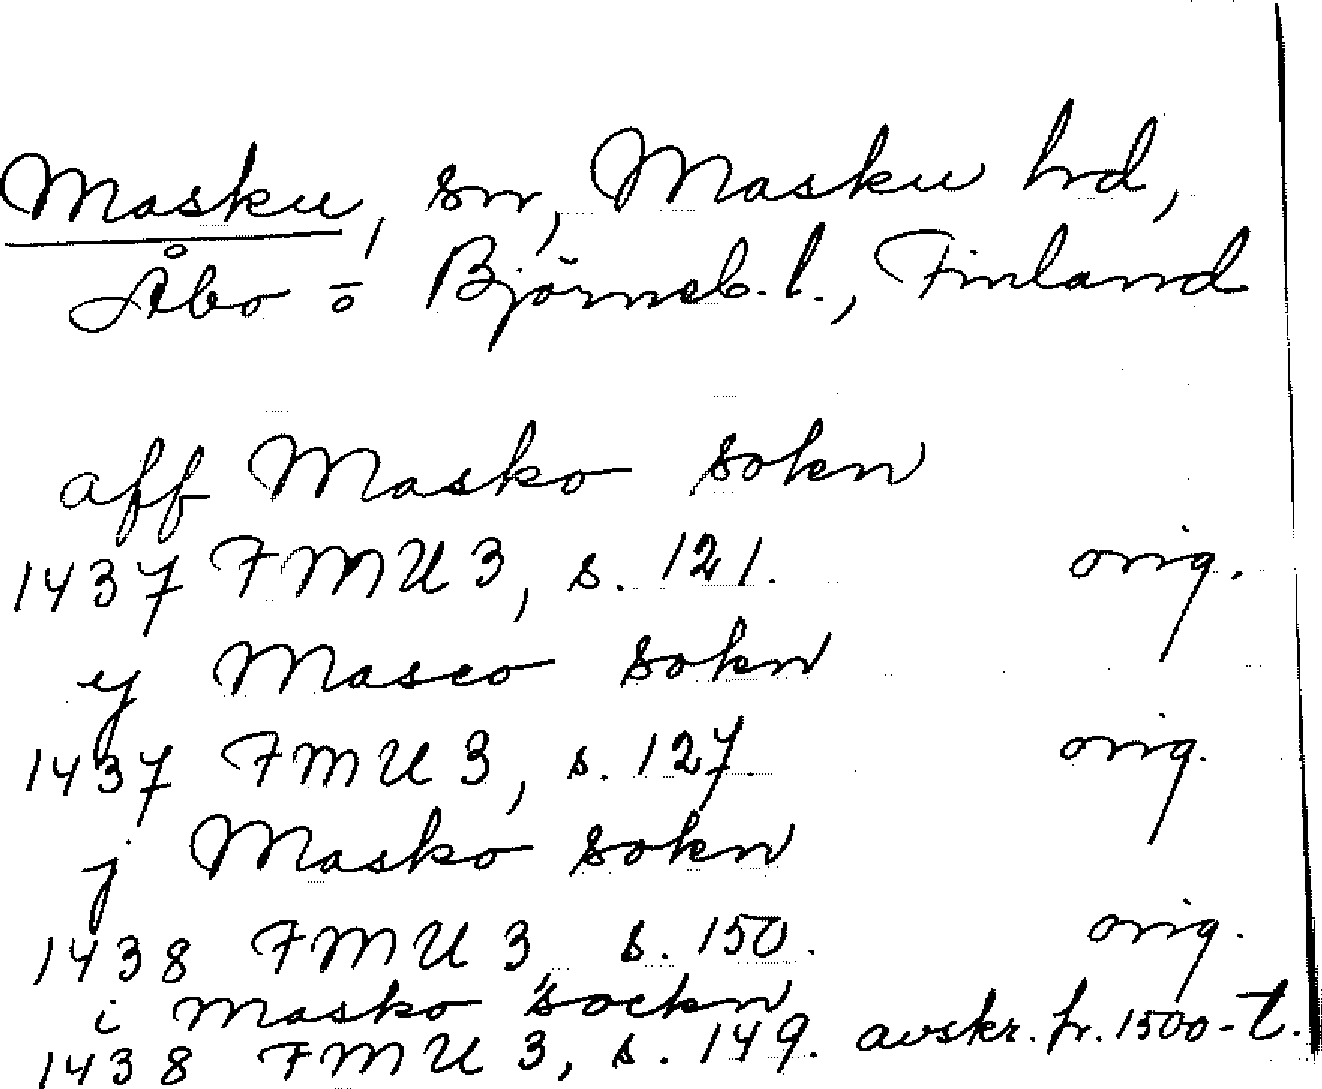 Masku, sn, Masku hrd,
Åbo o Björneb. l., Finland
aff Masko sokn
1437 FMU 3, s. 121. orig.
y Masco sokn
1437 FMU 3, s. 127. orig.
j Masko sokn
1438 FMU 3, s. 150. orig.
i Masko sockn
1438 FMU 3, s. 149. avskr. fr. 1500-t.